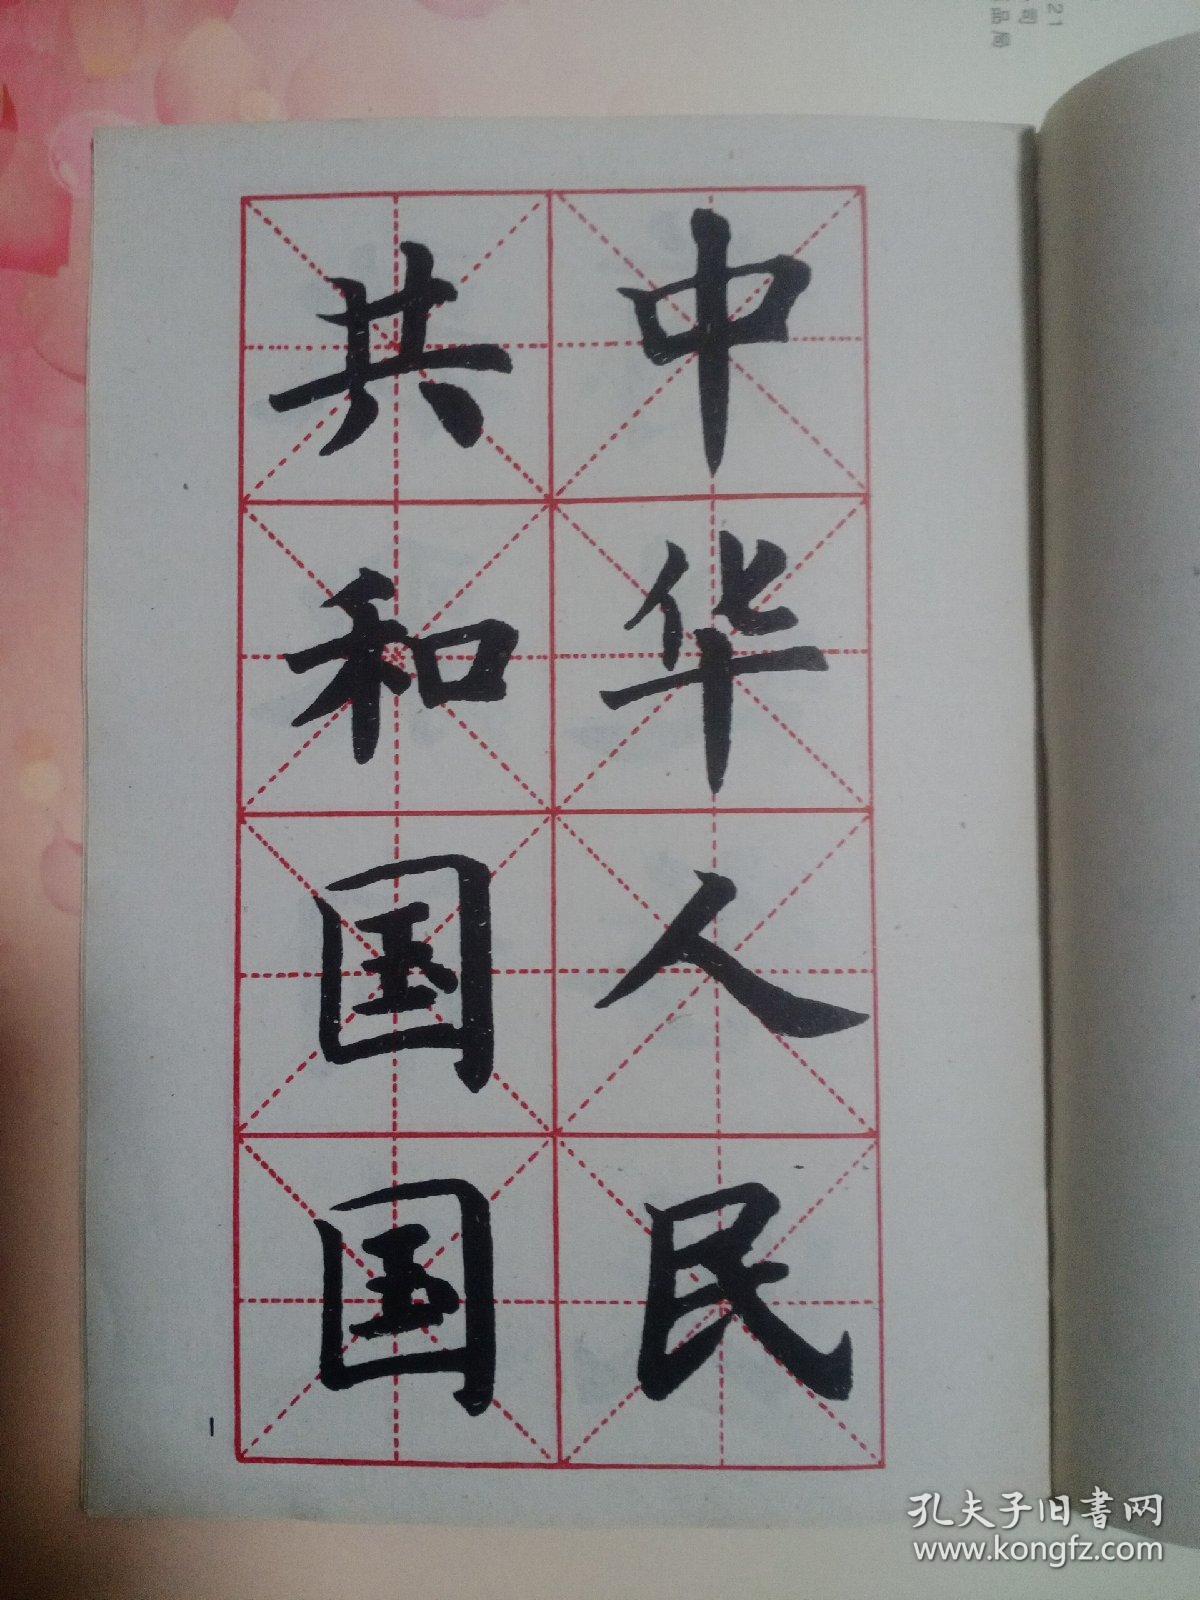 中华人民
共和国国
1
21
司
品局
孔夫子旧書网
www.kongfz.com